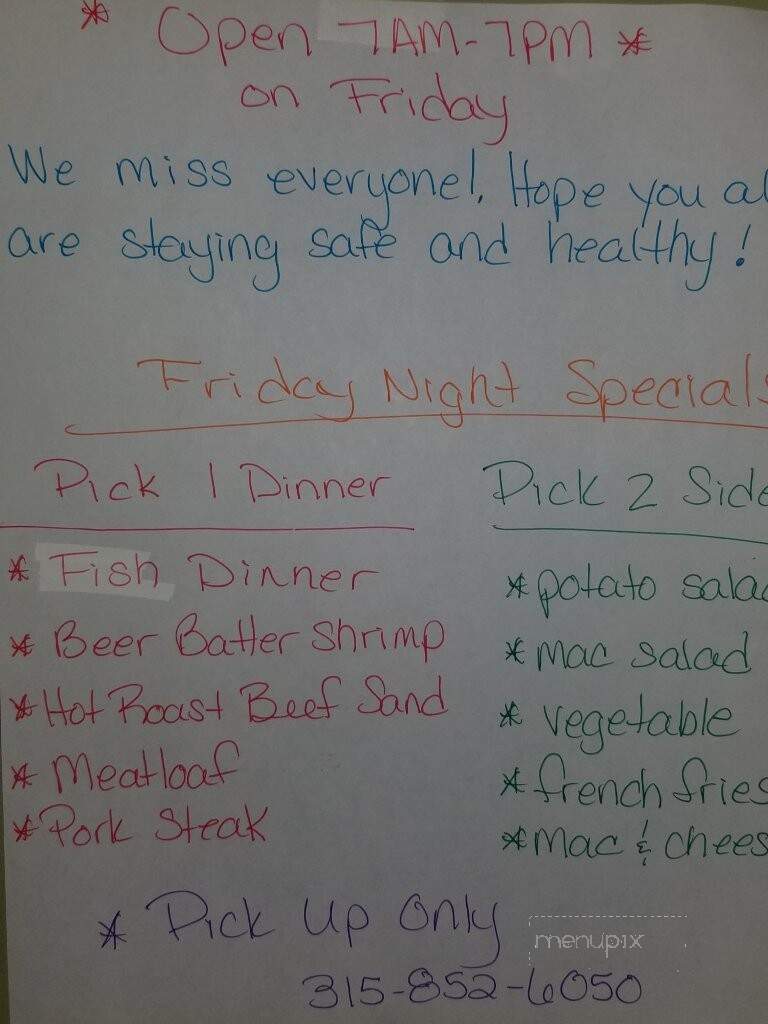 * Open 7AM-7PM *
on Friday
We miss everyone!. Hope you al
are staying safe and healthy!
Friday Night Specials
Pick 1 Dinner
* Fish Dinner
* Beer Batter Shrimp
* Hot Roast Beef Sand
* Meatloaf
* Pork Steak
Pick 2 Side
* potato salad
* mac salad
* vegetable
* french fries
* mac & chees
* Pick Up Only
menupix
315-852-6050